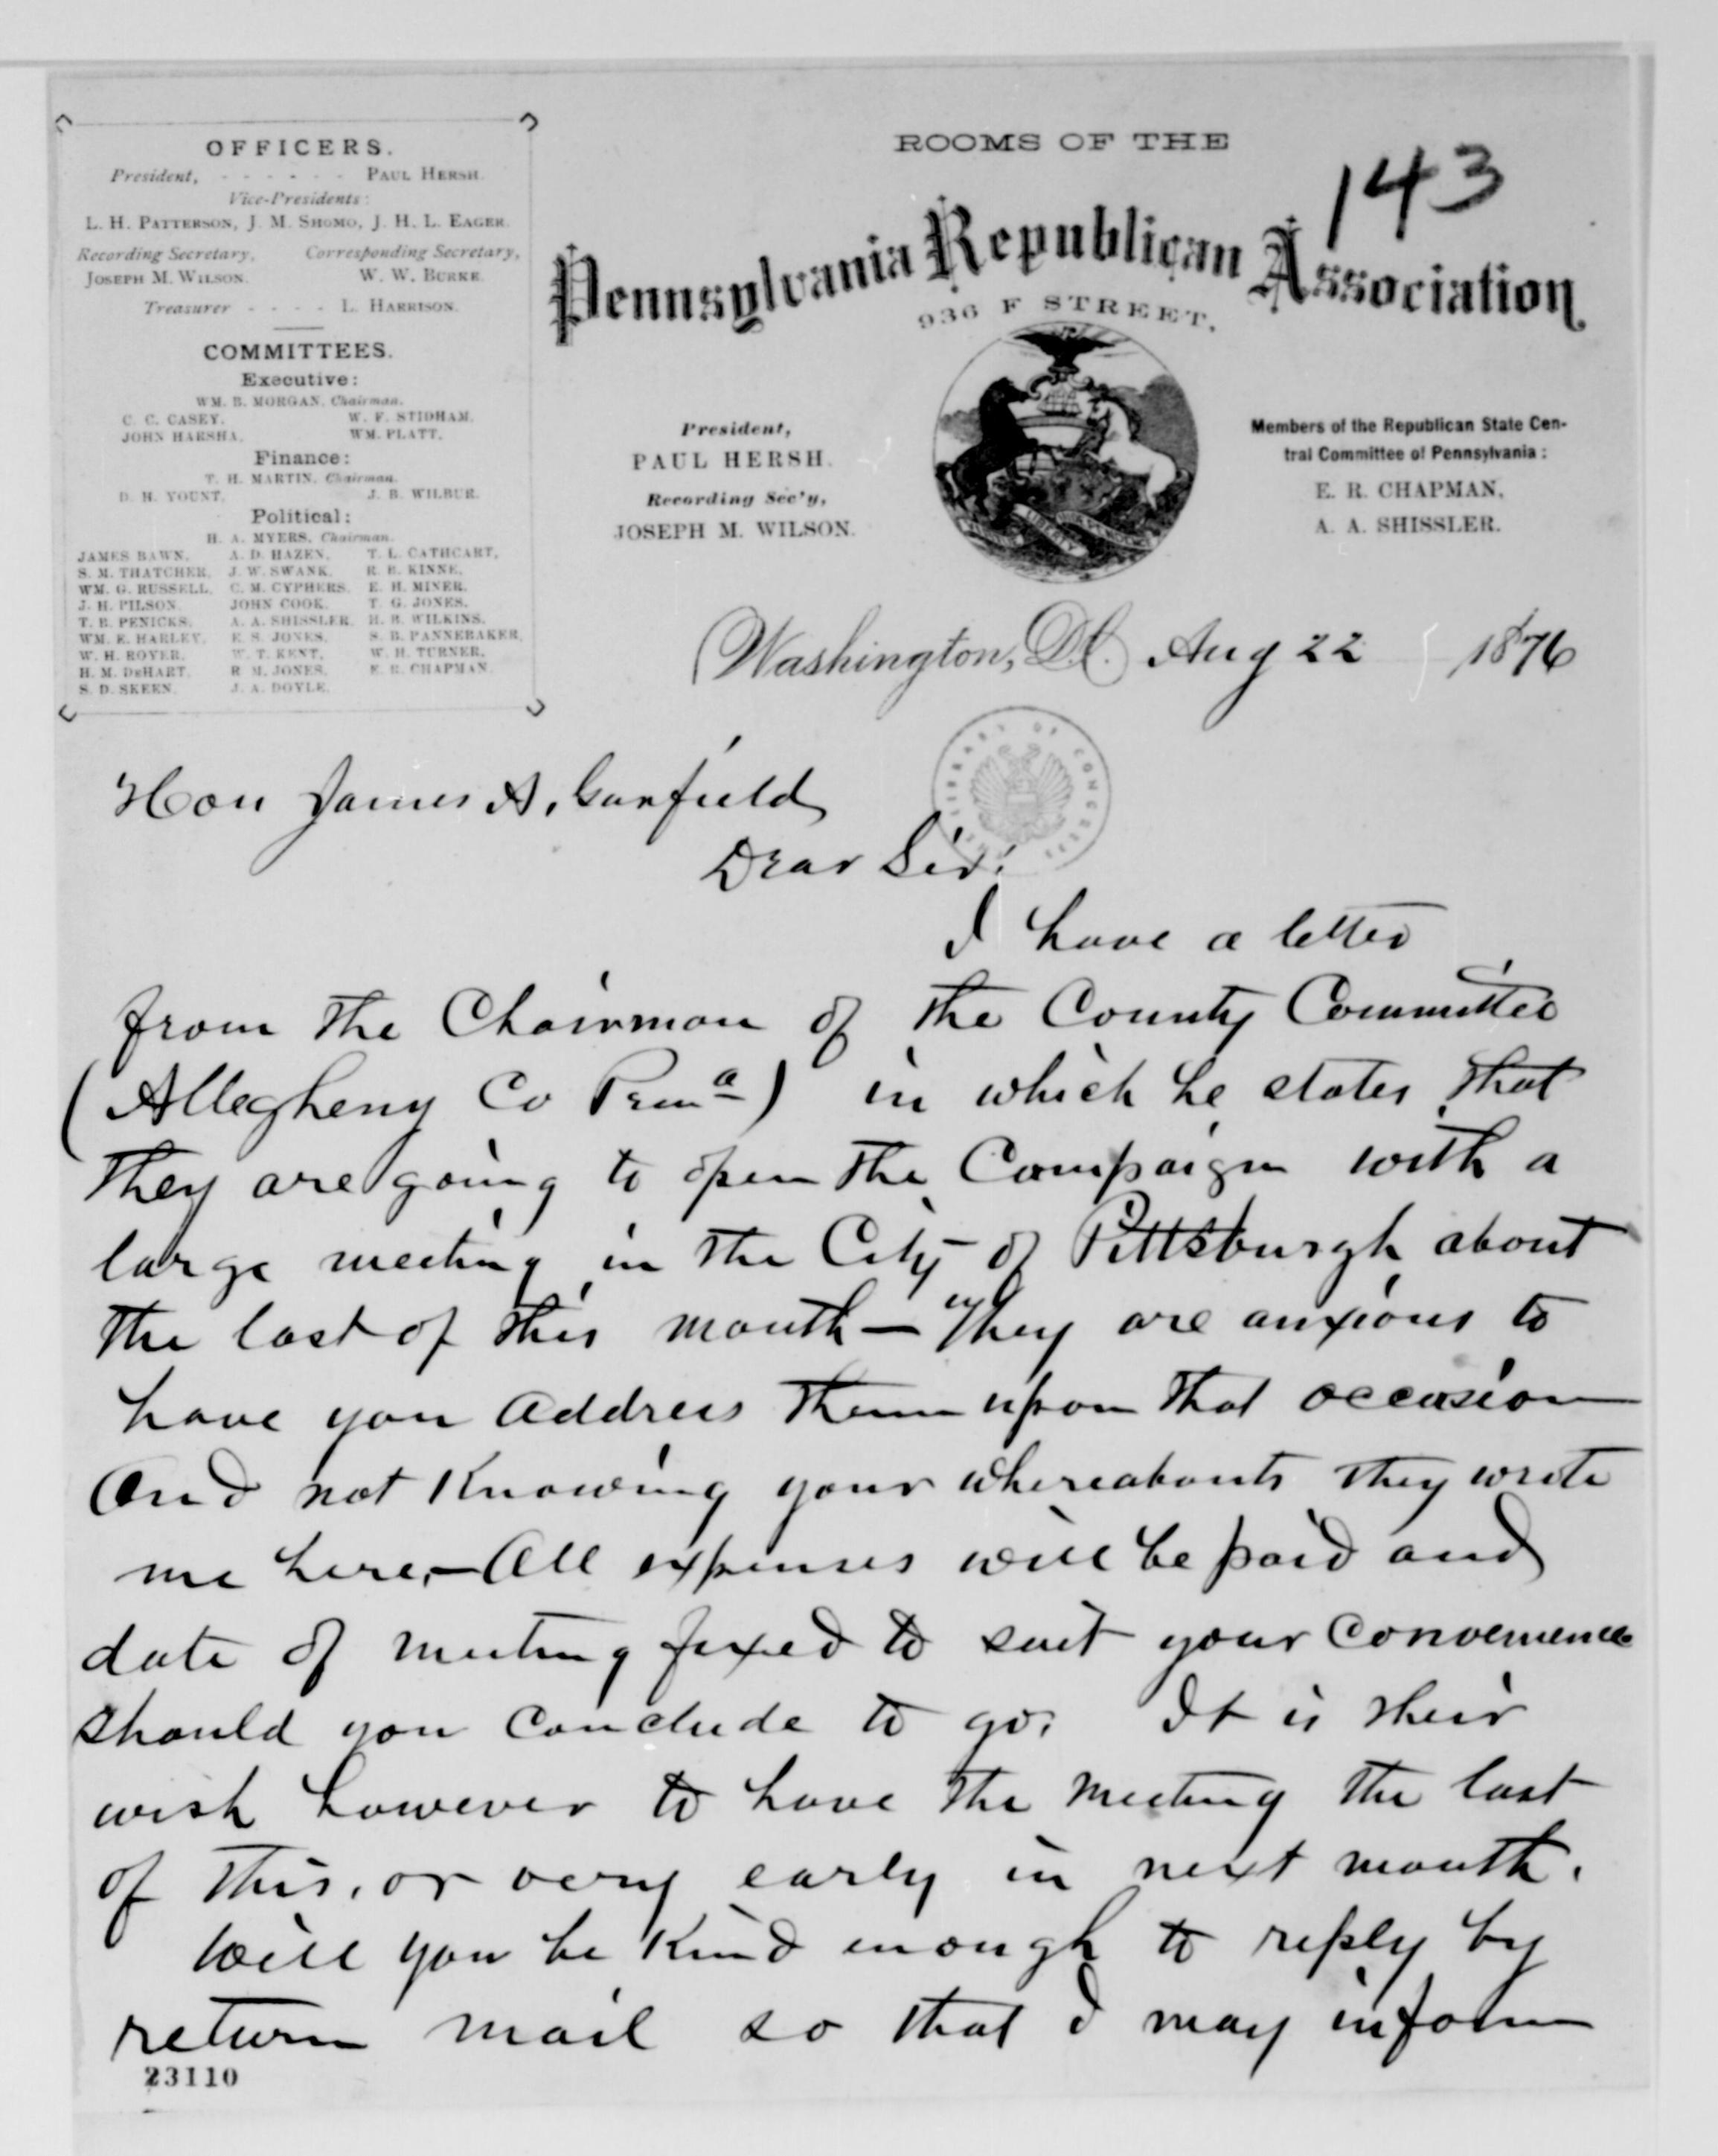 OFFICERS.
President, - - - - - - PAUL HERSH.
Vice-Presidents:
L. H. PATTERSON, J. M. SHOMO, J. H. L. EAGER.
Recording Secretary, Corresponding Secretary,
JOSEPH M. WILSON. W. W. BURKE.
Treasurer - - - - L. HARRISON.
COMMITTEES.
Executive:
WM. B. MORGAN, Chairman.
C. C. CASEY, W. F. STIDHAM,
JOHN HARSHA, WM. PLATT.
Finance:
T. H. MARTIN, Chairman.
D. H. YOUNT, J. B. WILBUR.
Political:
H. A. MYERS, Chairman.
JAMES BAWN, A. D. HAZEN, T. L. CATHCART,
S. M. THATCHER, J. W. SWANK, R. B. KINNE,
WM. G. RUSSELL, C. M. CYPHERS, E. H. MINER,
J. H. PILSON, JOHN COOK, T. G. JONES,
T. B. PENICKS, A. A. SHISSLER, H. B. WILKINS,
WM. E. HARLEY, E. S. JONES, S. B. PANNEBAKER,
W. H. ROYER, W. T. KENT, W. H. TURNER,
H. M. DEHART, R. M. JONES, E. R. CHAPMAN.
S. D. SKEEN, J. A. DOYLE.
ROOMS OF THE
143
Pennsylvania Republican Association
936 F STREET,
President,
PAUL HERSH.
Recording Sec'y,
JOSEPH M. WILSON.
Members of the Republican State Cen-
tral Committee of Pennsylvania:
E. R. CHAPMAN,
A. A. SHISSLER.
Washington, D.C. Aug 22 1876
LIBRARY OF CONGRESS
Hon James A. Garfield
Dear Sir:
I have a letter
from the Chairman of the County Committee
(Allegheny Co Penna) in which he states that
they are going to open the Campaign with a
large meeting in the City of Pittsburgh about
the last of this month — They are anxious to
have you address them upon that occasion
and not knowing your whereabouts they wrote
me here,— All expenses will be paid and
date of meeting fixed to suit your convenience
should you conclude to go. It is their
wish however to have the meeting the last
of this, or very early in next month.
Will you be kind enough to reply by
return mail so that I may inform
23110